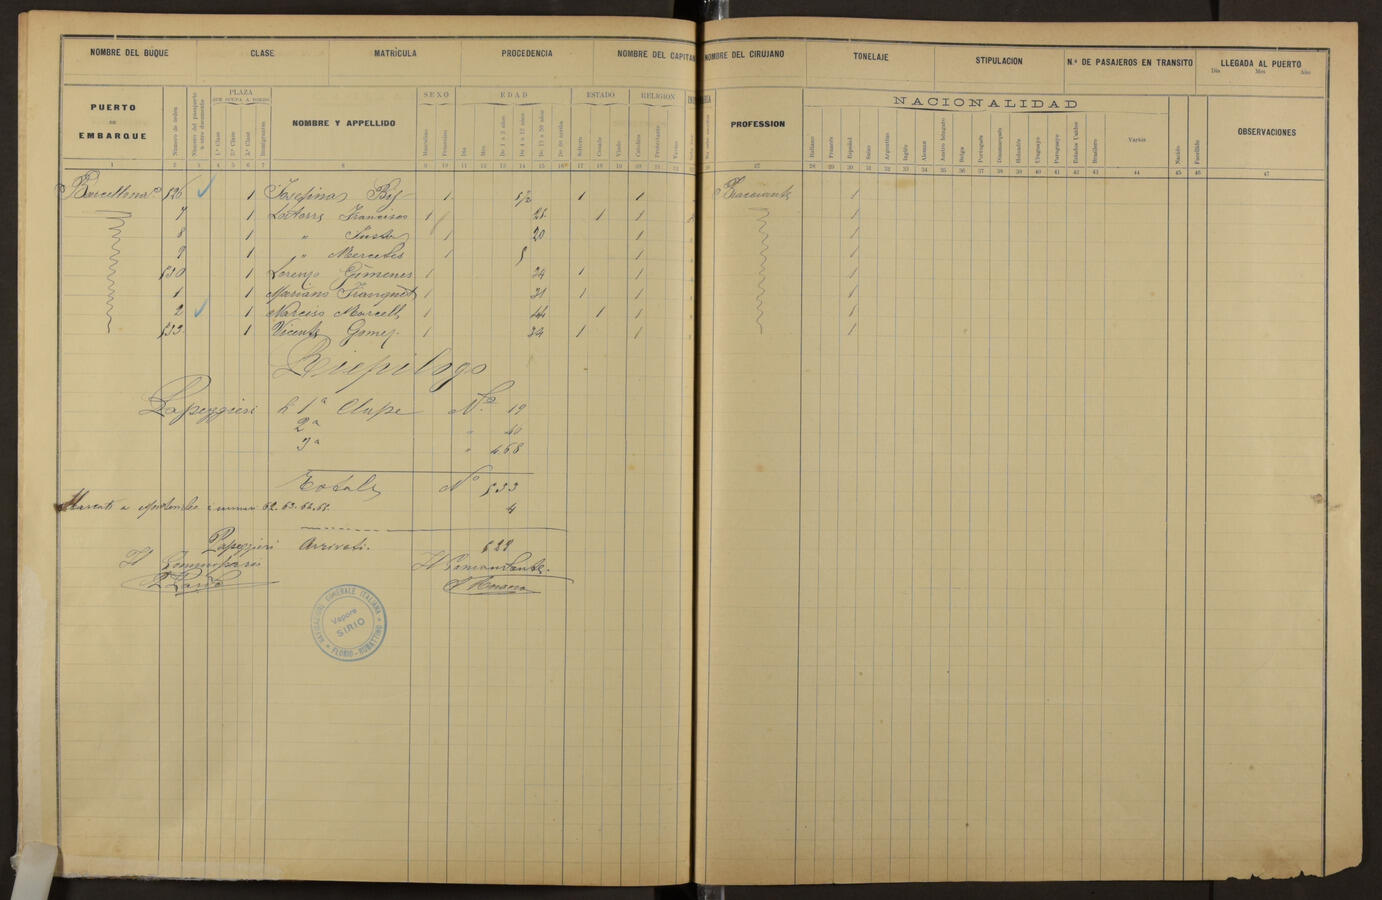 NOMBRE DEL BUQUE CLASE MATRÍCULA PROCEDENCIA NOMBRE DEL CAPITAN NOMBRE DEL CIRUJANO TONELAJE STIPULACION N.º DE PASAJEROS EN TRANSITO LLEGADA AL PUERTO
Dia Mes Año
PUERTO DE EMBARQUE
Número de orden
Número del pasaporte ú otro documento
PLAZA QUE OCUPA A BORDO
1.ª Clase 2.ª Clase 3.ª Clase Inmigrantes
NOMBRE Y APELLIDO
SEXO
Masculino Femenino
EDAD
Dia Mes De 1 a 3 años De 4 a 12 años De 13 a 50 años De 50 arriba
ESTADO
Soltero Casado Viudo
RELIGION
Católica Protestante Varias
PROFESSION
NACIONALIDAD
Italiano Francés Español Suizo Argentino Inglés Aleman Austro húngaro Belga Portugués Dinamarqués Holandés Uruguayo Paraguayo Estados Unidos Brasilero Varios
Nacido Fallecido
OBSERVACIONES
1 2 3 4 5 6 7 8 9 10 11 12 13 14 15 16 17 18 19 20 21 22 27 28 29 30 31 32 33 34 35 36 37 38 39 40 41 42 43 44 45 46 47
Barcellona 526 1 Josefina 1 1 1 1
7 1 Latorre Francisco 1 1 1 1
8 1 " 1 20 1 1
9 1 " Mercedes 1 5 1 1
530 1 Lorenzo Gimenes 1 24 1 1 1
1 1 Mariano Franquet 1 31 1 1 1
2 1 Narciso Marcell 1 44 1 1 1
533 1 Vicente Gomez 1 24 1 1 1
Riepilogo
Passeggieri di 1ª Classe Nº 19
2ª " 40
3ª " 468
Totale Nº 533
62. 63. 64. 65. 4
Passeggieri Arrivati. 529
Il Commissario Il Comandante
NAVIGAZIONE GENERALE ITALIANA
Vapore
SIRIO
FLORIO-RUBATTINO